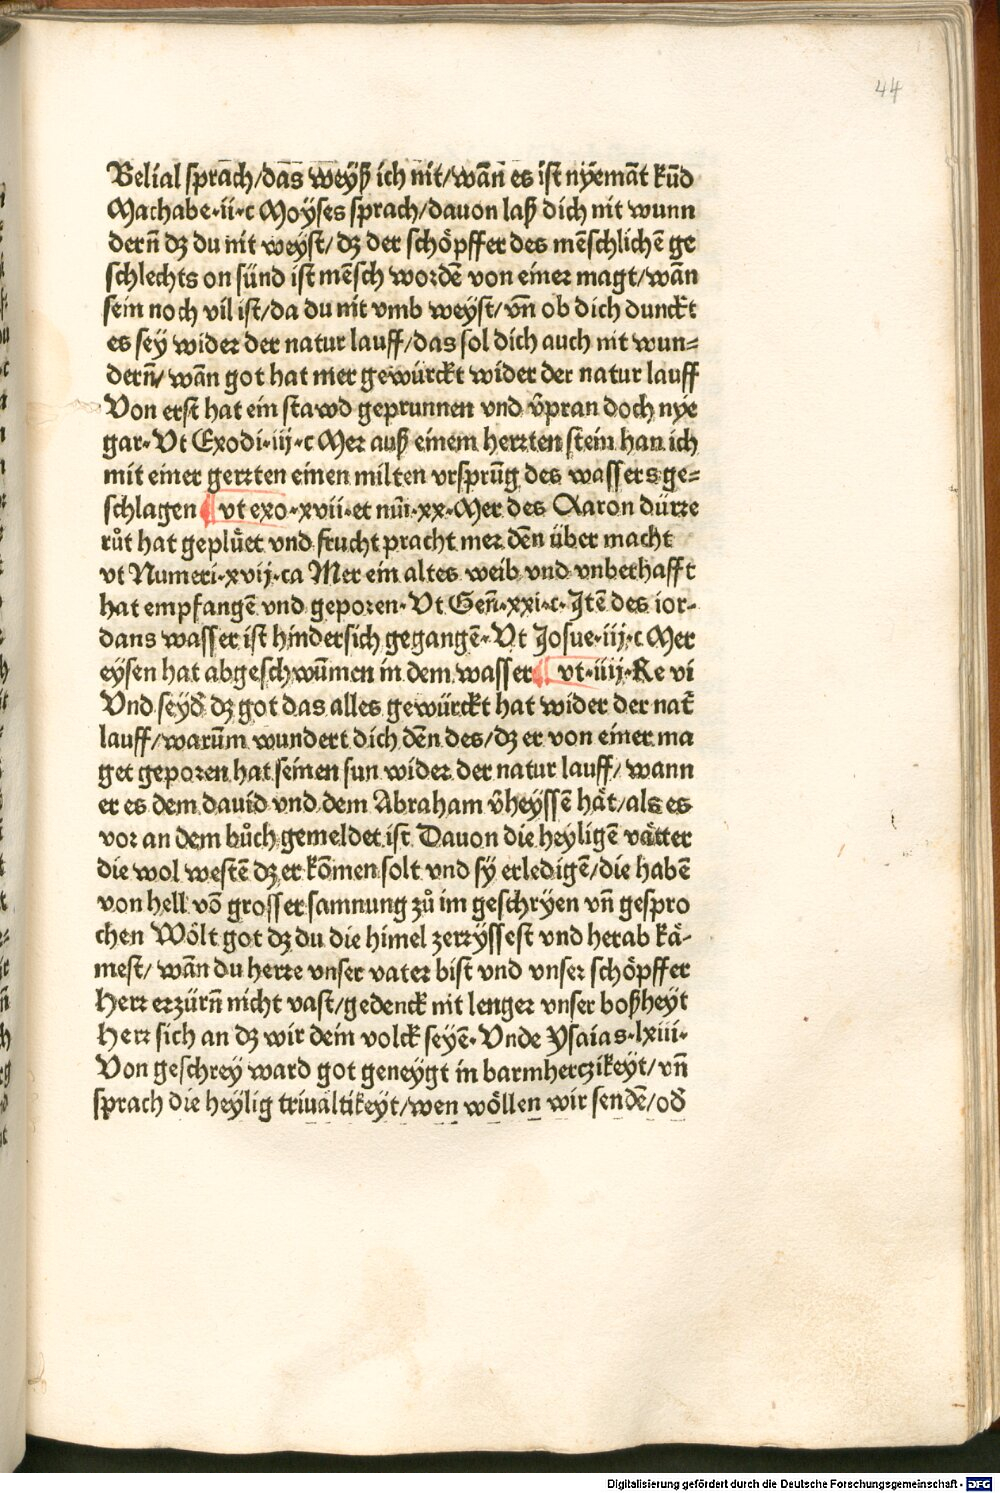 44
Belial sprach/das weyß ich nit/wañ es ist nyemāt kūd
Machabe·ii·c Moyses sprach/dauon laß dich nit wunn
dern̄ dz du nit weyst/dz der schöpffer des mēschlichē ge
schlechts on sünd ist mēsch wordē von einer magt/wañ
sein noch vil ist/da du nit vmb weyst/vn̄ ob dich dunckt
es sey wider der natur lauff/das sol dich auch nit wun⸗
dern̄/wañ got hat mer gewürckt wider der natur lauff
Von erst hat ein stawd geprunnen vnd v̄pran doch nye
gar·Vt Exodi·iij·c Mer auß einem herrten stein han ich
mit einer gerrten einen milten vrsprūg des wassers ge⸗
schlagen ¶ vt exo·xvii·et nūi·xx·Mer des Aaron dürre
růt hat geplüet vnd frucht pracht mer dēn über macht
vt Numeri·xvij·ca Mer ein altes weib vnd vnberhafft
hat empfangē vnd geporen·Vt Geñ·xxi·c·Jtē des ior⸗
dans wasser ist hindersich gegangē·Vt Josue·iij·c Mer
eysen hat abgeschwūmen in dem wasser ¶ vt·iiij·Re vi
Vnd seyd̄ dz got das alles gewürckt hat wider der nat̄
lauff/warūm wundert dich dēn des/dz er von einer ma
get geporen hat seinen sun wider der natur lauff/wann
er es dem dauid vnd dem Abraham v̄heyssē hät/als es
vor an dem bůch gemeldet ist Dauon die heyligē vätter
die wol westē dz er kōmen solt vnd sy erledigē/die habē
von hell vō grosser samnung zů im geschryen vn̄ gespro
chen Wölt got dz du die himel zerryssest vnd herab kä⸗
mest/wañ du herre vnser vater bist vnd vnser schöpffer
Herr erzürn̄ nicht vast/gedenck nit lenger vnser boßheyt
Herr sich an dz wir dein volck seyē·Vnde Ysaias·lxiii·
Von geschrey ward got geneygt in barmherczikeyt/vn̄
sprach die heylig triualtikeyt/wen wöllen wir sendē/od̄
Digitalisierung gefördert durch die Deutsche Forschungsgemeinschaft - DFG